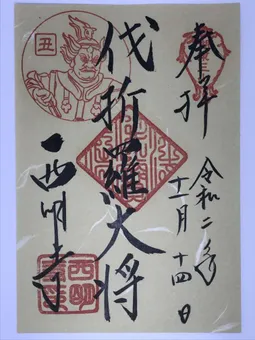 奉拝
令和二年
十一月十四日
伐折羅大将
丑
西明寺
西明
寺印